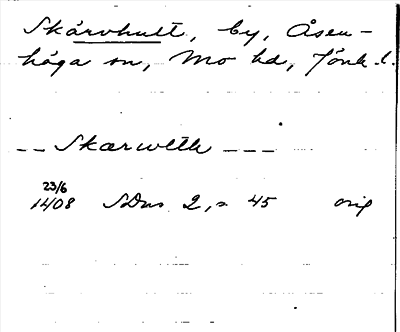 Skårvhult, by, Åsen-
höga sn, Mo hd, Jönk. l.
-- Skarwlth ---
23/6
1408 SDns 2, s 45 orig